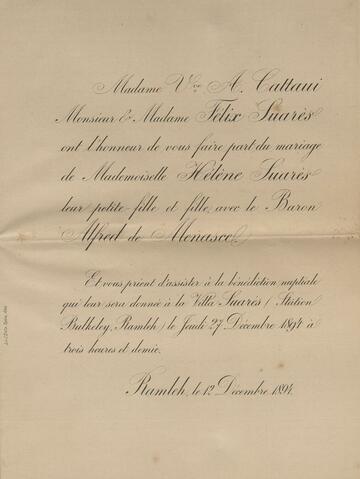 Madame Vve A. Cattaui
Monsieur & Madame Félix Suarès
ont l'honneur de vous faire part du mariage
de Mademoiselle Hélène Suarès
leur petite-fille et fille, avec le Baron
Alfred de Menasce.
Et vous prient d'assister à la bénédiction nuptiale
qui leur sera donnée à la Villa Suarès (Station
Bulkeley, Ramleh) le Jeudi 27 Décembre 1894 à
trois heures et demie.
Ramleh, le 12 Décembre 1894.